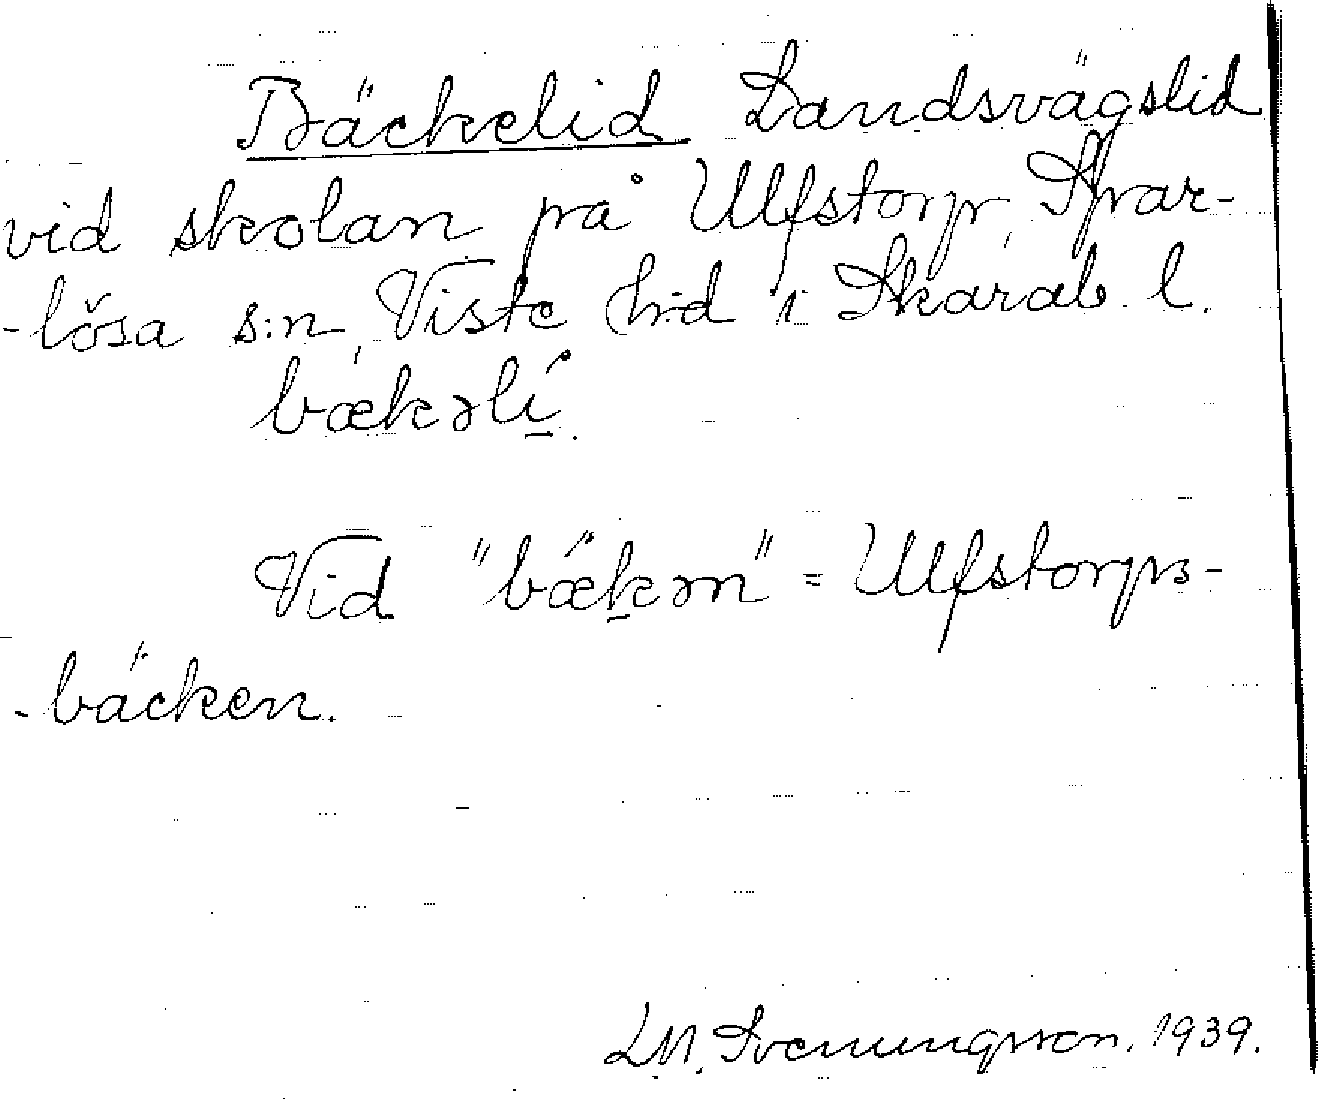 Bäckelid Landsvägslid
vid skolan på Ulfstorp, Spar-
-lösa s:n, Viste h:d i Skarab. l.
bækəlí.
Vid "bækən" = Ulfstorps-
-bäcken.
L.M. Svenungsson. 1939.